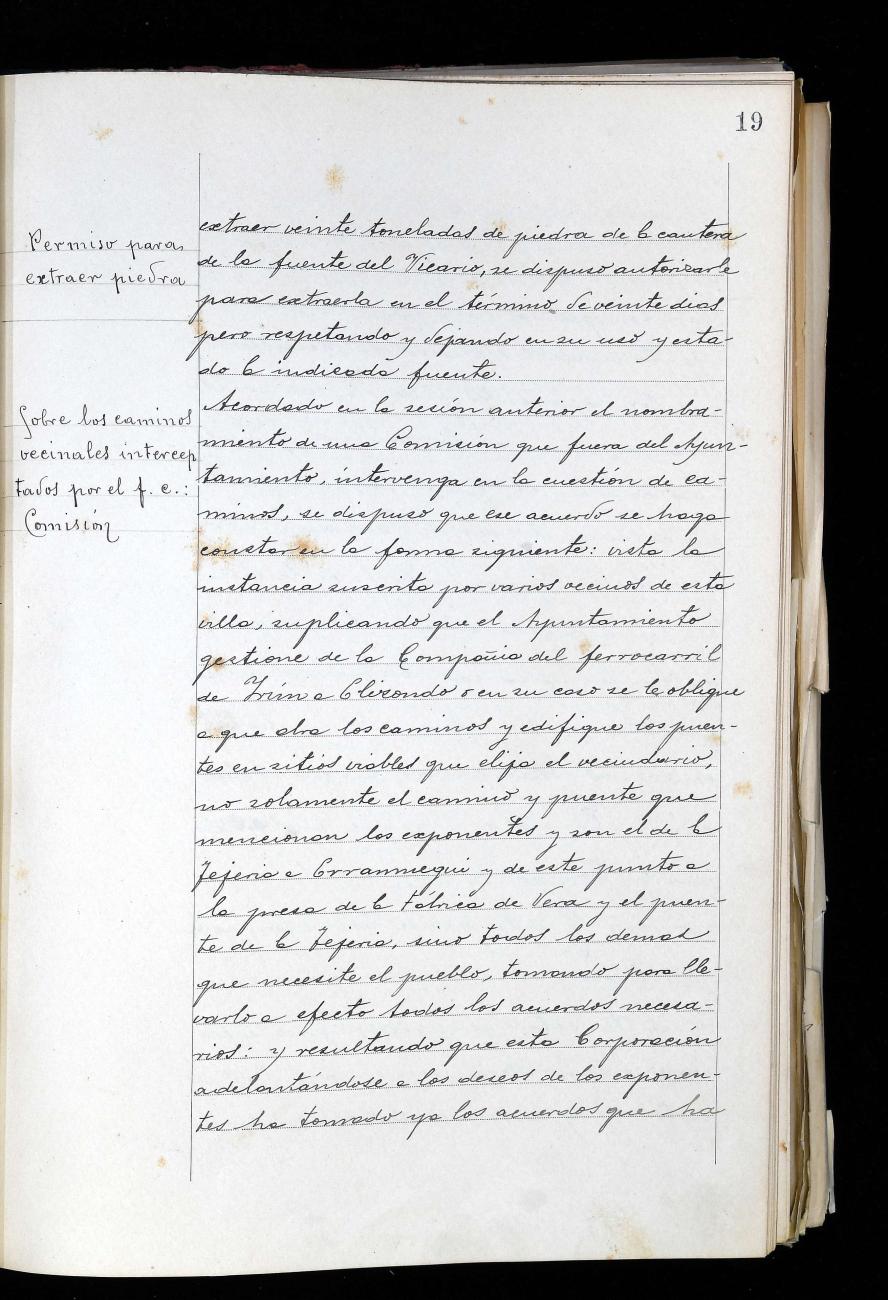 19
Permiso para
extraer piedra
extraer veinte toneladas de piedra de la cantera
de la fuente del Vicario, se dispuso autorizarle
para extraerla en el término de veinte dias
pero respetando y dejando en su uso y esta-
do la indicada fuente.
Sobre los caminos
vecinales intercep
tados por el f. c.:
Comisión
Acordado en la sesión anterior el nombra-
miento de una Comisión que fuera del Ayun-
tamiento, intervenga en la cuestión de ca-
minos, se dispuso que ese acuerdo se haga
constar en la forma siguiente: vista la
instancia suscrita por varios vecinos de esta
villa, suplicando que el Ayuntamiento
gestione de la Compañia del ferrocarril
de Irún a Elizondo o en su caso se le oblique
a que abra los caminos y edifique los puen-
tes en sitios viables que elija el vecindario,
no solamente el camino y puente que
mencionan los exponentes y son el de la
Tejeria a Errannegui y de este punto a
la presa de la Fábrica de Vera y el puen-
te de la Tejeria, sino todos los demas
que necesite el pueblo, tomando para lle-
varlo a efecto todos los acuerdos necesa-
rios: y resultando que esta Corporación
adelantándose a los deseos de los exponen-
tes ha tomado ya los acuerdos que ha